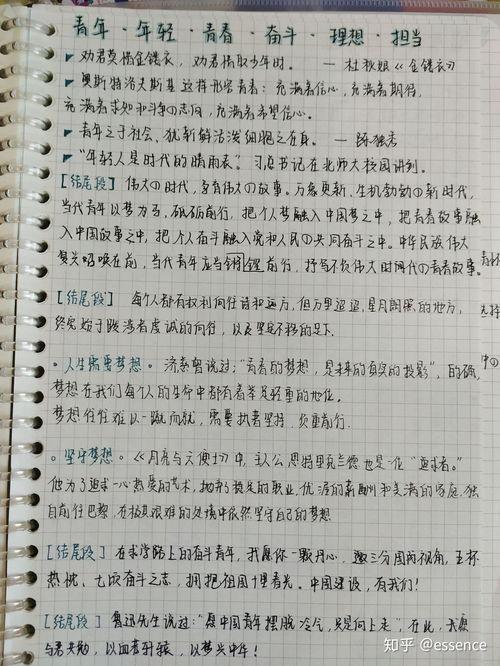 青年·年轻·青春·奋斗·理想·担当
劝君莫惜金缕衣，劝君惜取少年时。 — 杜秋娘《金缕衣》
奥斯特洛夫斯基这样形容青春：充满着信心，充满着期待，
充满着求知和斗争の志向，充满着希望信心。
青年之于社会，犹新鲜活泼细胞之在身。 — 陈独秀
"年轻人是时代的晴雨表。"习总书记在北师大校园讲到。
[结尾段] 伟大の时代，会有伟大の故事。万象更新、生机勃勃の新时代，
当代青年以梦为马，砥砺前行，把个人梦融入中国梦之中，把青春故事融
入中国故事之中，把个人奋斗融入党和人民の共同奋斗之中。中华民族伟大
复兴召唤在前，当代青年应当铿锵前行，抒写不负伟大时代の青春故事。
[结尾段] 每个人都有权利向往诗和远方，但万里迢迢，星月朗照的地方，
终究始于跋涉者虔诚的向往，以及坚定不移的足下
。人生需要梦想。 济慈曾说过："青春的梦想，是未来的真实的投影"，的确，
梦想在我们每个人的生命中都有着举足轻重的地位。
梦想往往难以一蹴而就，需要执着坚持，负重前行。
。坚守梦想。《月亮与六便士》中，主人公思特里克兰德也是一位"追求者。"
他为了追求一心热爱的艺术，抛弃了稳定的职业，优渥的薪酬和美满的家庭，独
自前往巴黎，在极其艰难的处境中依然坚守自己的梦想
[结尾段] 在求学路上的奋斗青年，我愿你一颗丹心，邀三分国两视角，五杯
热忱，七顷奋斗之志，拥抱祖国十里春光。中国建设，有我们！
[结尾段] 鲁迅先生说过："愿中国青年摆脱冷气，只是向上走"，在此，我愿
与君共勉，以血荐轩辕，以梦兴中华！
知乎 @essence